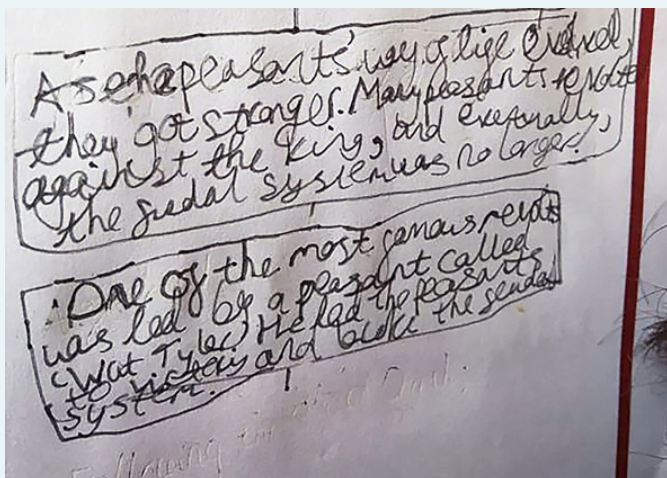 As the peasants' way of life evolved,
they got stronger. Many peasants revolted
against the king, and evetunally,
the fuedal system was no longer.
One of the most famous revolts
was led by a peasant called
(Wat Tyler) He led the peasants
to victory and broke the feudal
system.
Following